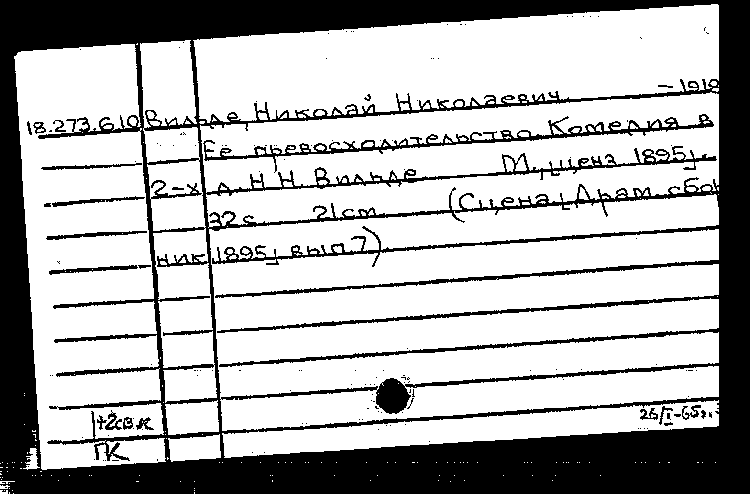 18.273.6.10 Вильде, Николай Николаевич. – 1918
Её превосходительство. Комедия в
2-х д. Н. Н. Вильде М., ценз 1895].
32 с. 21 см. (Сцена. [Драм. сбор
ник 1895] вып. 7).
26/I-65 г.
ГК